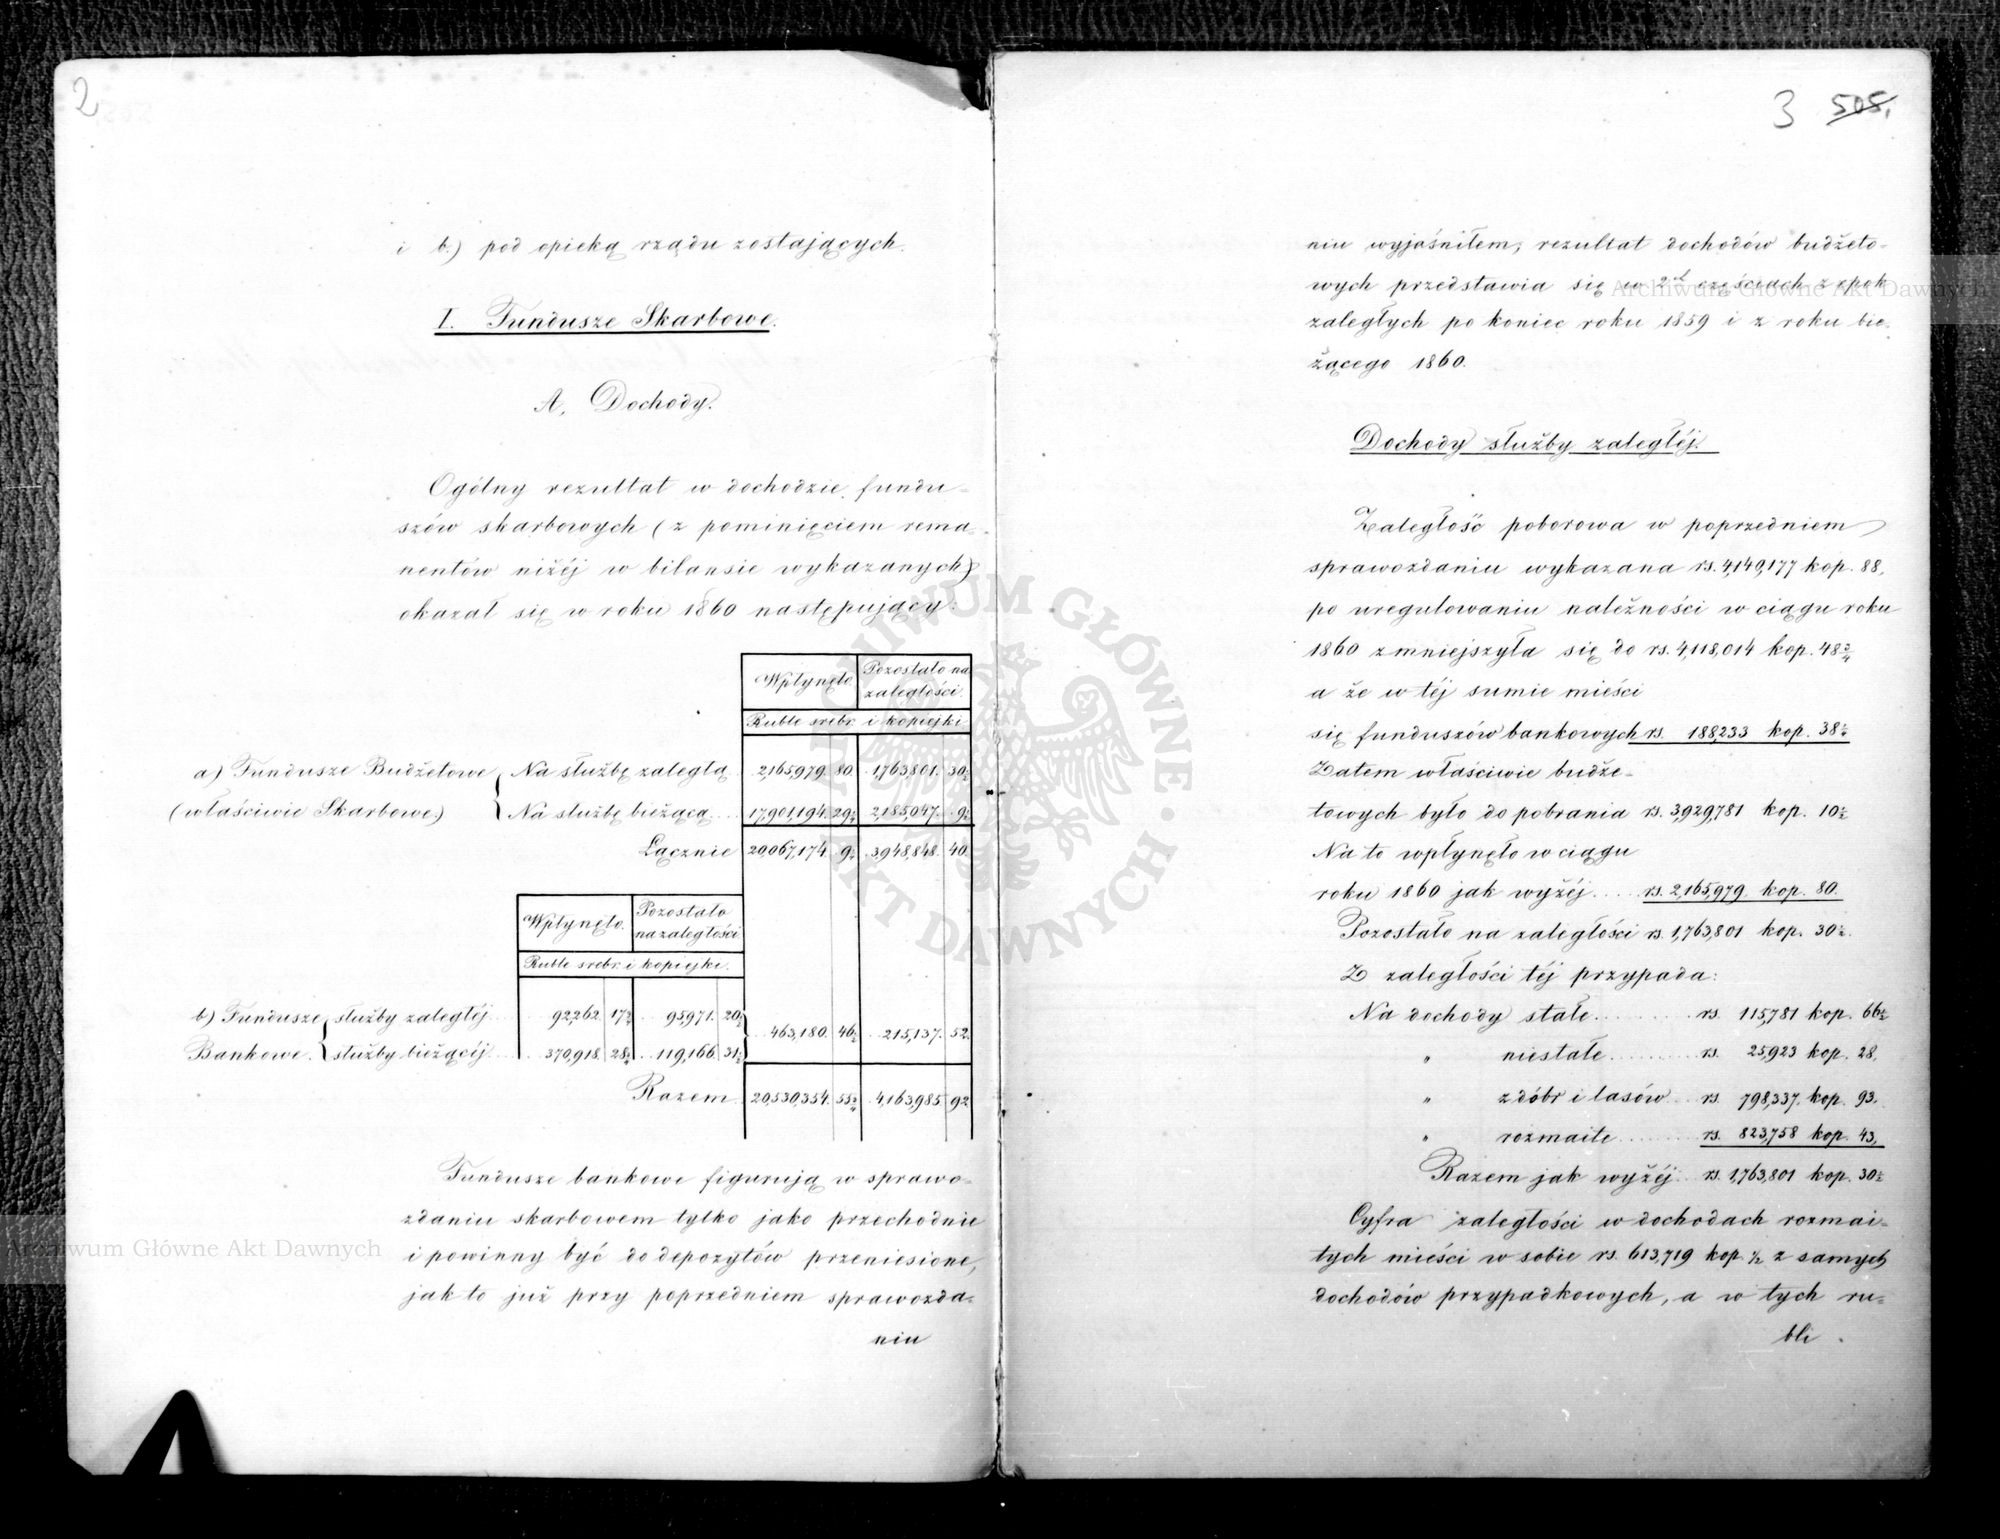 2
i b.) pod opieką rządu zostających.
I. Fundusze Skarbowe.
A, Dochody.
Ogólny rezultat w dochodzie fundu-
szów skarbowych (z pominięciem rema-
nentów niżéj w bilansie wykazanych)
okazał się w roku 1860 następujący:
Wpłynęło. Pozostało na
zaległości.
Ruble srebr. i kopiejki
a) Fundusze Budżetowe Na służbę zaległą 2,165,979. 80. 1,763,801. 30½
(właściwie Skarbowe) Na służbę bieżącą 17,901,194. 29¼ 2,185,047. 9½
Łącznie 20,067,174. 9¼ 3,948,848. 40.
Wpłynęło. Pozostało
na zaległości
Ruble srebr. i kopiejki.
b) Fundusze służby zaległéj 92,262. 17¾ 95,971. 20½ 463,180. 46½ 215,137. 52.
Bankowe. służby bieżącéj 370,918. 28¾ 119,166. 31½
Razem 20,530,354. 55¾ 4,163,985 92
Fundusze bankowe figurują w sprawo-
zdaniu skarbowem tylko jako przechodnie
i powinny być do depozytów przeniesione,
jak to już przy poprzedniem sprawozda-
niu
3 505.
niu wyjaśniłem, rezultat dochodów budżeto-
wych przedstawia się w 2ch częściach z epok
zaległych po koniec roku 1859 i z roku bie-
żącego 1860.
Dochody służby zaległéj.
Zaległość poborowa w poprzedniem
sprawozdaniu wykazana rs. 4,140,177 kop. 88,
po uregulowaniu należności w ciągu roku
1860 zmniejszyła się do rs. 4,118,014 kop. 48¾
a że w téj sumie mieści
się funduszów bankowych rs. 188,233 kop. 38¼
Zatem właściwie budże-
towych było do pobrania rs. 3,929,781 kop. 10½
Na to wpłynęło w ciągu
roku 1860 jak wyżéj .... rs. 2,165,979. kop. 80.
Pozostało na zaległości rs. 1,763,801 kop. 30½.
Z zaległości téj przypada:
Na dochody stałe ........ rs. 115,781 kop. 66½
" niestałe ........ rs. 25,923 kop. 28.
" z dóbr i lasów rs. 798,337. kop. 93.
" rozmaite ........ rs. 823,758 kop. 43,
Razem jak wyżéj rs. 1,763,801 kop. 30½
Cyfra zaległości w dochodach rozmai-
tych mieści w sobie rs. 613,719 kop. ½ z samych
dochodów przypadkowych, a w tych ru-
bli
Archiwum Główne Akt Dawnych
Archiwum Główne Akt Dawnych
ARCHIWUM GŁÓWNE AKT DAWNYCH